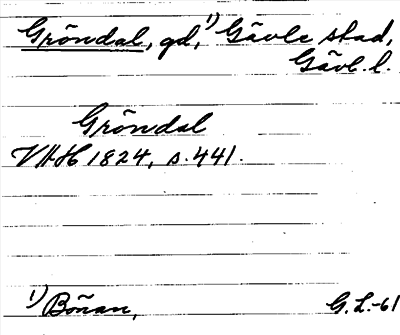 Gröndal, gd,¹⁾ Gävle stad,
Gävl. l.
Gröndal
VHH 1824, s. 441.
¹⁾ Bönan, G.L.-61